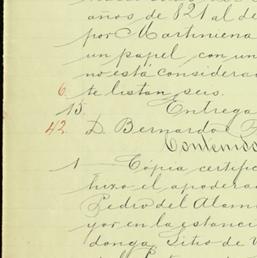 años de 821 al de
por Martiniena
un papel con un
no está considerad
6 te listan seis.
15. Entrega
42 D. Bernardo
Contenido
1 Cópia certific
hizo el apoderad
Pedro del Alam
yor en la estanci
donga, Sitio de V